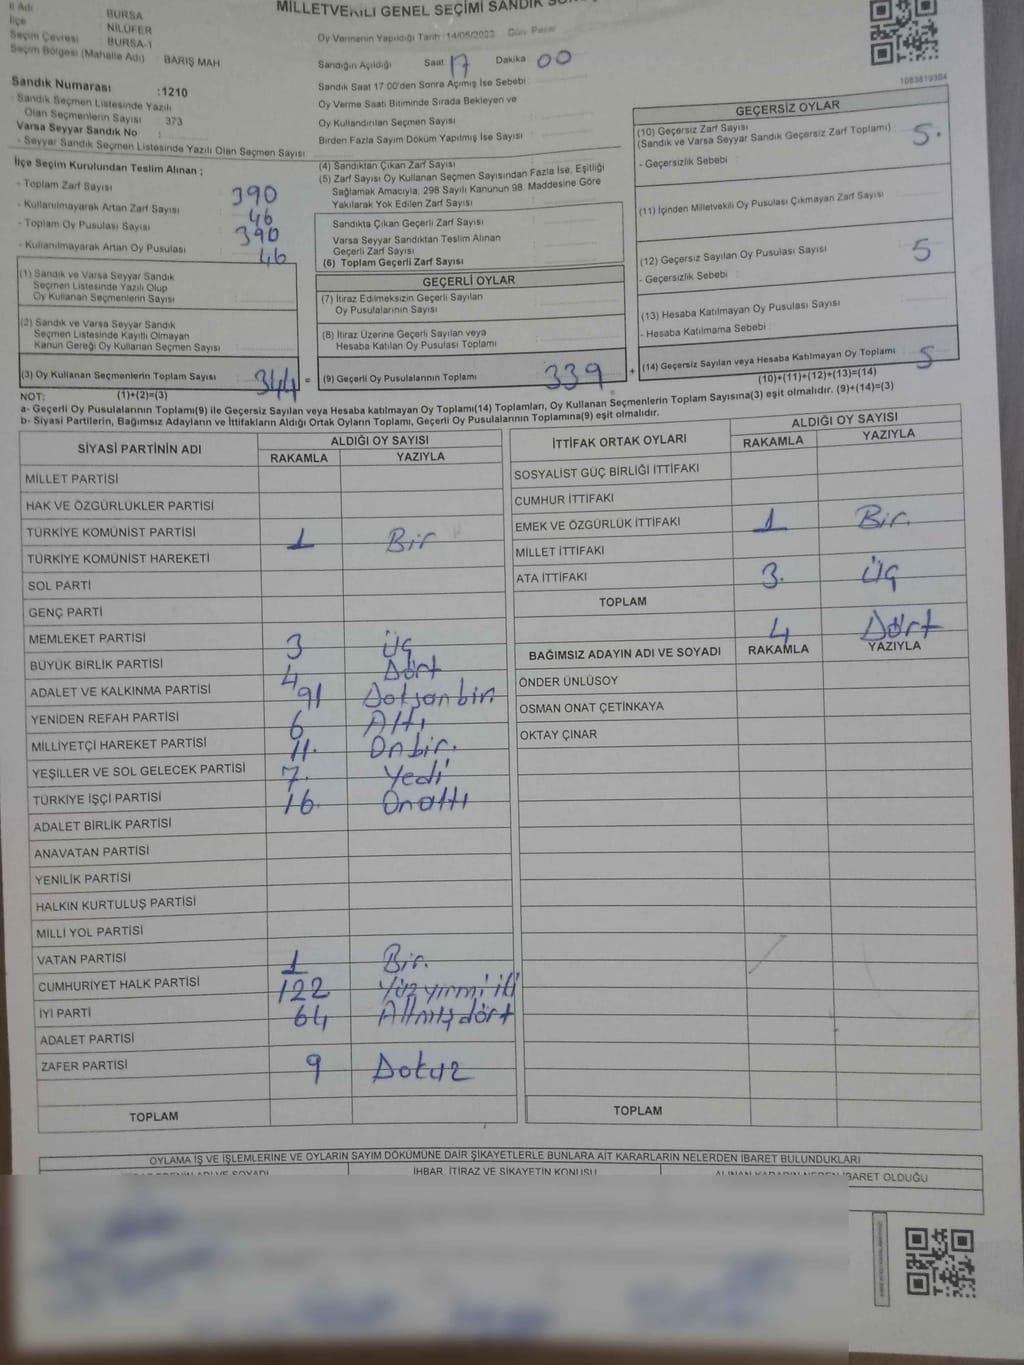 MİLLETVEKİLİ GENEL SEÇİMİ SANDIK
İl Adı BURSA
İlçe NİLÜFER
Seçim Çevresi BURSA-1
Seçim Bölgesi (Mahalle Adı) : BARIŞ MAH
Sandık Numarası :1210
- Sandık Seçmen Listesinde Yazılı
Olan Seçmenlerin Sayısı : 373
Varsa Seyyar Sandık No :
- Seyyar Sandık Seçmen Listesinde Yazılı Olan Seçmen Sayısı :
Oy Vermenin Yapıldığı Tarih :14/05/2023 Gün: Pazar
Sandığın Açıldığı Saat 17 Dakika 00
Sandık Saat 17:00'den Sonra Açımış İse Sebebi :
Oy Verme Saati Bitiminde Sırada Bekleyen ve
Oy Kullandırılan Seçmen Sayısı :
Birden Fazla Sayım Döküm Yapılmış İse Sayısı :
1083819304
İlçe Seçim Kurulundan Teslim Alınan ;
- Toplam Zarf Sayısı 390
- Kullanılmayarak Artan Zarf Sayısı 46
- Toplam Oy Pusulası Sayısı 390
- Kullanılmayarak Artan Oy Pusulası 46
(1) Sandık ve Varsa Seyyar Sandık
Seçmen Listesinde Yazılı Olup
Oy Kullanan Seçmenlerin Sayısı :
(2) Sandık ve Varsa Seyyar Sandık
Seçmen Listesinde Kayıtlı Olmayan
Kanun Gereği Oy Kullanan Seçmen Sayısı :
(3) Oy Kullanan Seçmenlerin Toplam Sayısı 344 =
(4) Sandıktan Çıkan Zarf Sayısı
(5) Zarf Sayısı Oy Kullanan Seçmen Sayısından Fazla İse, Eşitliği
Sağlamak Amacıyla, 298 Sayılı Kanunun 98. Maddesine Göre
Yakılarak Yok Edilen Zarf Sayısı
Sandıkta Çıkan Geçerli Zarf Sayısı
Varsa Seyyar Sandıktan Teslim Alınan
Geçerli Zarf Sayısı
(6) Toplam Geçerli Zarf Sayısı
GEÇERLİ OYLAR
(7) İtiraz Edilmeksizin Geçerli Sayılan
Oy Pusulalarının Sayısı
(8) İtiraz Üzerine Geçerli Sayılan veya
Hesaba Katılan Oy Pusulası Toplamı
(9) Geçerli Oy Pusulalarının Toplamı 339 +
GEÇERSİZ OYLAR
(10) Geçersiz Zarf Sayısı
(Sandık ve Varsa Seyyar Sandık Geçersiz Zarf Toplamı) 5.
- Geçersizlik Sebebi :
(11) İçinden Milletvekili Oy Pusulası Çıkmayan Zarf Sayısı
(12) Geçersiz Sayılan Oy Pusulası Sayısı 5
- Geçersizlik Sebebi :
(13) Hesaba Katılmayan Oy Pusulası Sayısı
- Hesaba Katılmama Sebebi :
(14) Geçersiz Sayılan veya Hesaba Katılmayan Oy Toplamı 5
(10)+(11)+(12)+(13)=(14)
NOT: (1)+(2)=(3)
a- Geçerli Oy Pusulalarının Toplamı(9) ile Geçersiz Sayılan veya Hesaba katılmayan Oy Toplamı(14) Toplamları, Oy Kullanan Seçmenlerin Toplam Sayısına(3) eşit olmalıdır. (9)+(14)=(3)
b- Siyasi Partilerin, Bağımsız Adayların ve İttifakların Aldığı Ortak Oyların Toplamı, Geçerli Oy Pusulalarının Toplamına(9) eşit olmalıdır.
SİYASİ PARTİNİN ADI ALDIĞI OY SAYISI
RAKAMLA YAZIYLA
MİLLET PARTİSİ
HAK VE ÖZGÜRLÜKLER PARTİSİ
TÜRKİYE KOMÜNİST PARTİSİ 1 Bir
TÜRKİYE KOMÜNİST HAREKETİ
SOL PARTİ
GENÇ PARTİ
MEMLEKET PARTİSİ 3 Üç
BÜYÜK BİRLİK PARTİSİ 4 Dört
ADALET VE KALKINMA PARTİSİ 91 Doksanbir
YENİDEN REFAH PARTİSİ 6 Altı
MİLLİYETÇİ HAREKET PARTİSİ 11. Onbir.
YEŞİLLER VE SOL GELECEK PARTİSİ 7. Yedi
TÜRKİYE İŞÇİ PARTİSİ 16. Onaltı
ADALET BİRLİK PARTİSİ
ANAVATAN PARTİSİ
YENİLİK PARTİSİ
HALKIN KURTULUŞ PARTİSİ
MİLLİ YOL PARTİSİ
VATAN PARTİSİ 1 Bir.
CUMHURİYET HALK PARTİSİ 122 Yüzyirmiiki
İYİ PARTİ 64 Altmışdört
ADALET PARTİSİ
ZAFER PARTİSİ 9 Dokuz
TOPLAM
İTTİFAK ORTAK OYLARI ALDIĞI OY SAYISI
RAKAMLA YAZIYLA
SOSYALİST GÜÇ BİRLİĞİ İTTİFAKI
CUMHUR İTTİFAKI
EMEK VE ÖZGÜRLÜK İTTİFAKI 1 Bir.
MİLLET İTTİFAKI
ATA İTTİFAKI 3. Üç
TOPLAM
4 Dört
BAĞIMSIZ ADAYIN ADI VE SOYADI RAKAMLA YAZIYLA
ÖNDER ÜNLÜSOY
OSMAN ONAT ÇETİNKAYA
OKTAY ÇINAR
TOPLAM
OYLAMA İŞ VE İŞLEMLERİNE VE OYLARIN SAYIM DÖKÜMÜNE DAİR ŞİKAYETLERLE BUNLARA AİT KARARLARIN NELERDEN İBARET BULUNDUKLARI
İHBAR, İTİRAZ VE ŞİKAYETİN KONUSU
İBARET OLDUĞU